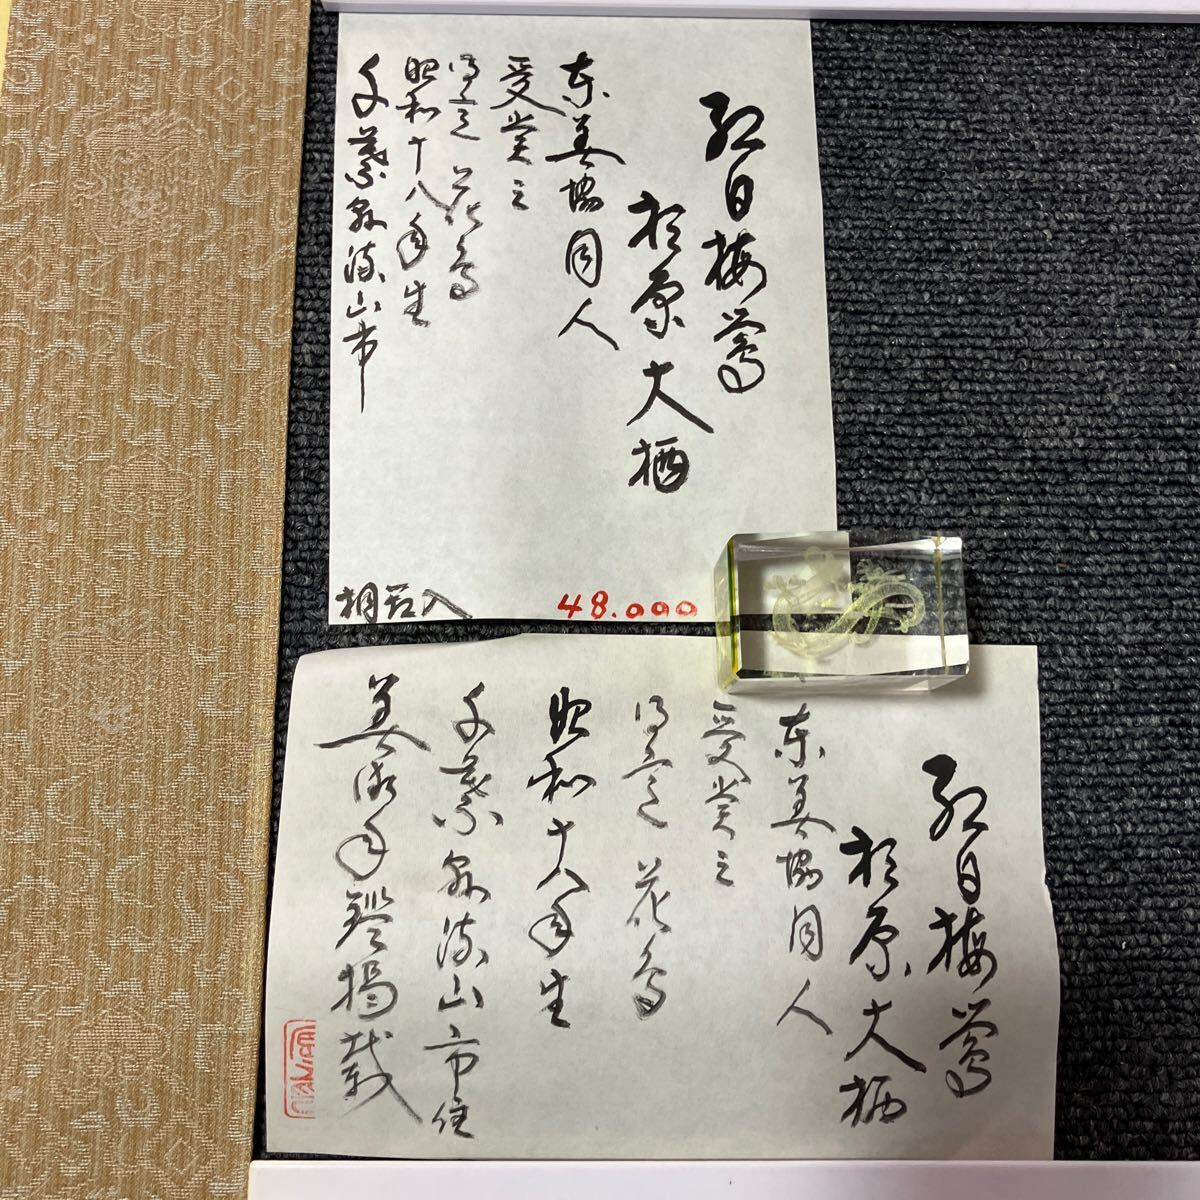 紅日梅鶯
杉原大栖
东美協同人
受賞之
得意 花鳥
昭和十八年生
千葉県流山市
桐箱入
48.000
紅日梅鶯
杉原大栖
东美協同人
受賞之
得意 花鳥
昭和十八年生
千葉県流山市住
美術年鑑掲載